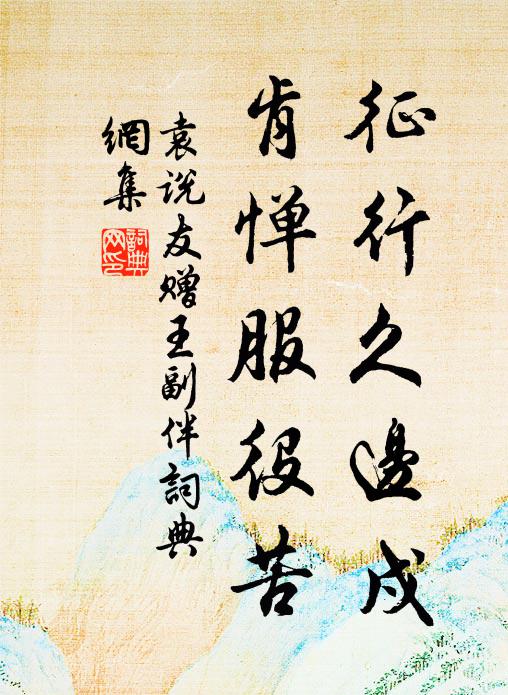 征行久邊戍
肯惮服役苦
袁说友赠王副伴詞典
網集
詞典
网印